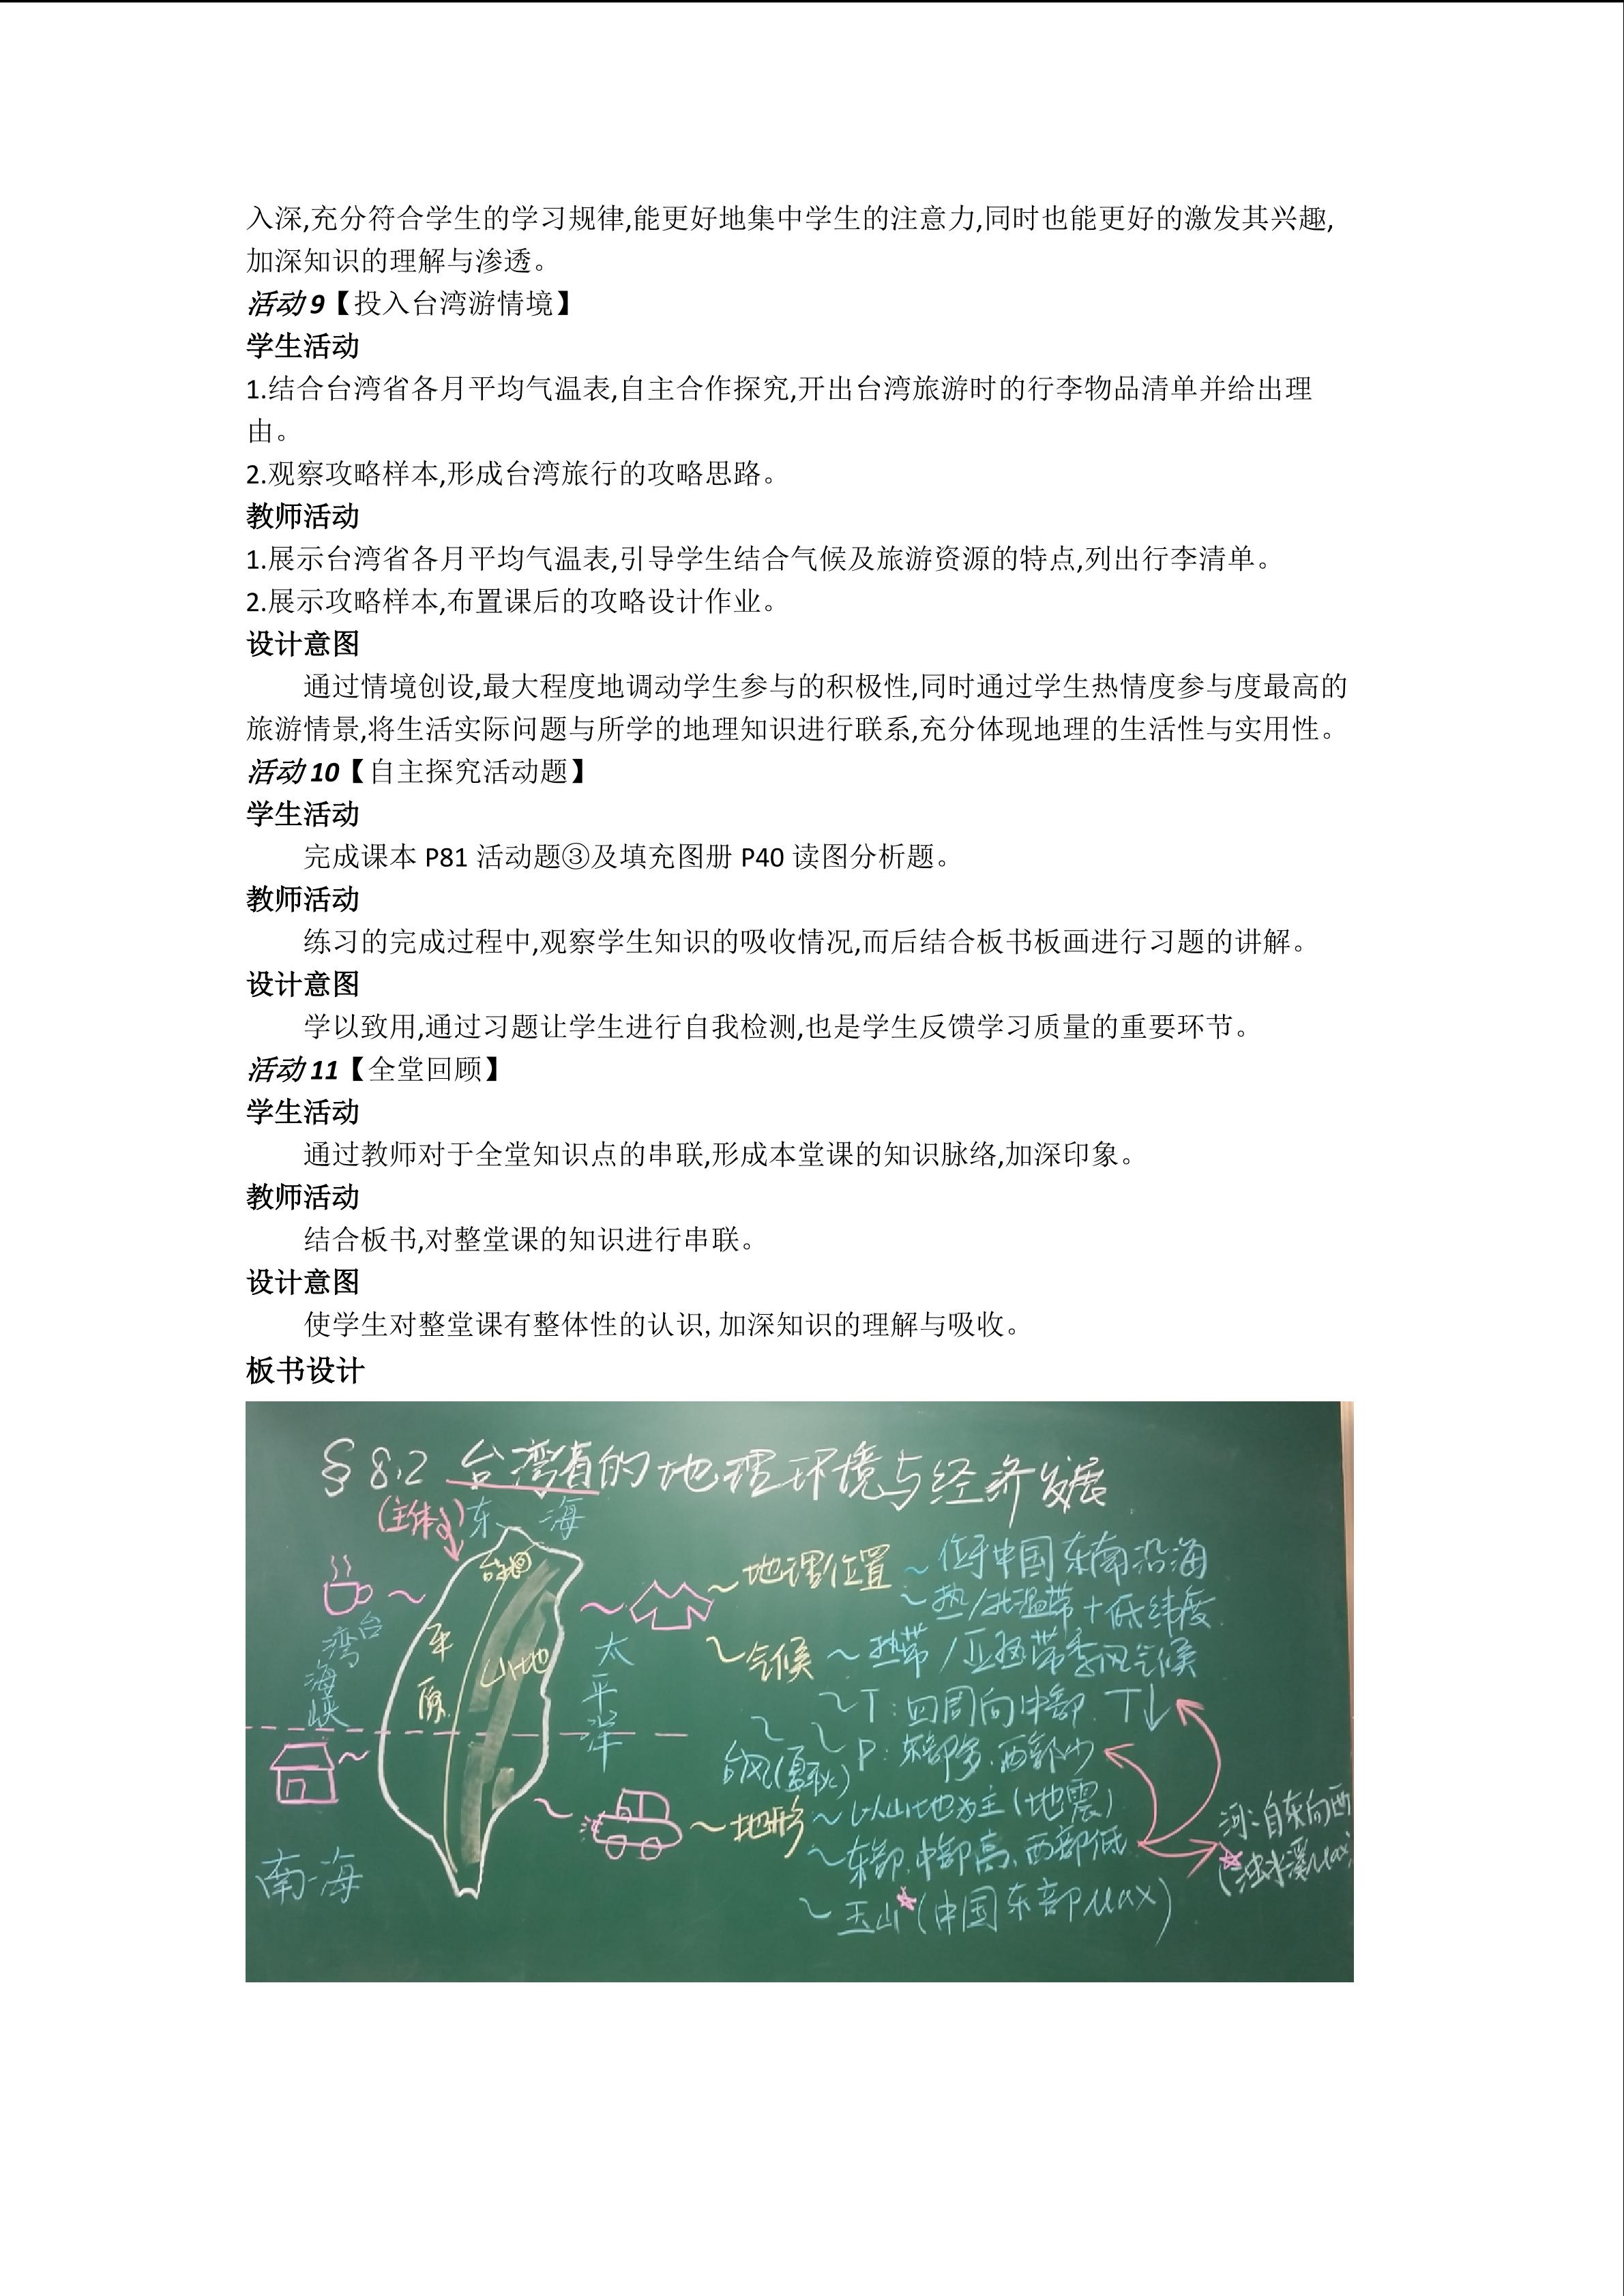 入深,充分符合学生的学习规律,能更好地集中学生的注意力,同时也能更好的激发其兴趣,
加深知识的理解与渗透。
活动9【投入台湾游情境】
学生活动
1.结合台湾省各月平均气温表,自主合作探究,开出台湾旅游时的行李物品清单并给出理
由。
2.观察攻略样本,形成台湾旅行的攻略思路。
教师活动
1.展示台湾省各月平均气温表,引导学生结合气候及旅游资源的特点,列出行李清单。
2.展示攻略样本,布置课后的攻略设计作业。
设计意图
通过情境创设,最大程度地调动学生参与的积极性,同时通过学生热情度参与度最高的
旅游情景,将生活实际问题与所学的地理知识进行联系,充分体现地理的生活性与实用性。
活动10【自主探究活动题】
学生活动
完成课本 P81 活动题③及填充图册 P40 读图分析题。
教师活动
练习的完成过程中,观察学生知识的吸收情况,而后结合板书板画进行习题的讲解。
设计意图
学以致用,通过习题让学生进行自我检测,也是学生反馈学习质量的重要环节。
活动11【全堂回顾】
学生活动
通过教师对于全堂知识点的串联,形成本堂课的知识脉络,加深印象。
教师活动
结合板书,对整堂课的知识进行串联。
设计意图
使学生对整堂课有整体性的认识, 加深知识的理解与吸收。
板书设计
§8.2 台湾省的地理环境与经济发展
(主体)
东海
平原
山地
台湾海峡
太平洋
南海
地理位置~位于中国东南沿海
~热/北温带+低纬度
气候~热带/亚热带季风气候
~T:四周向中部 T↓
~P:东部多、西部少
台风(夏秋)
~地形~以山地为主(地震)
~东部、中部高、西部低
~玉山(中国东部Max)
河:自东向西
(浊水溪Max)